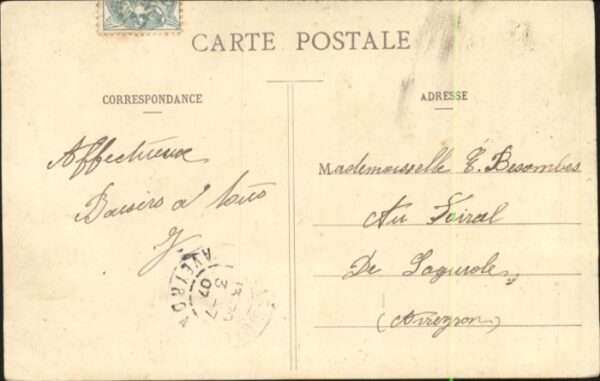 CARTE POSTALE
CORRESPONDANCE
ADRESSE
Affectueux
Baisers à tous
J.
Mademoiselle E. Besombes
Au Foiral
De Laguiole
(Aveyron)
AVEYRON
3 -7
07